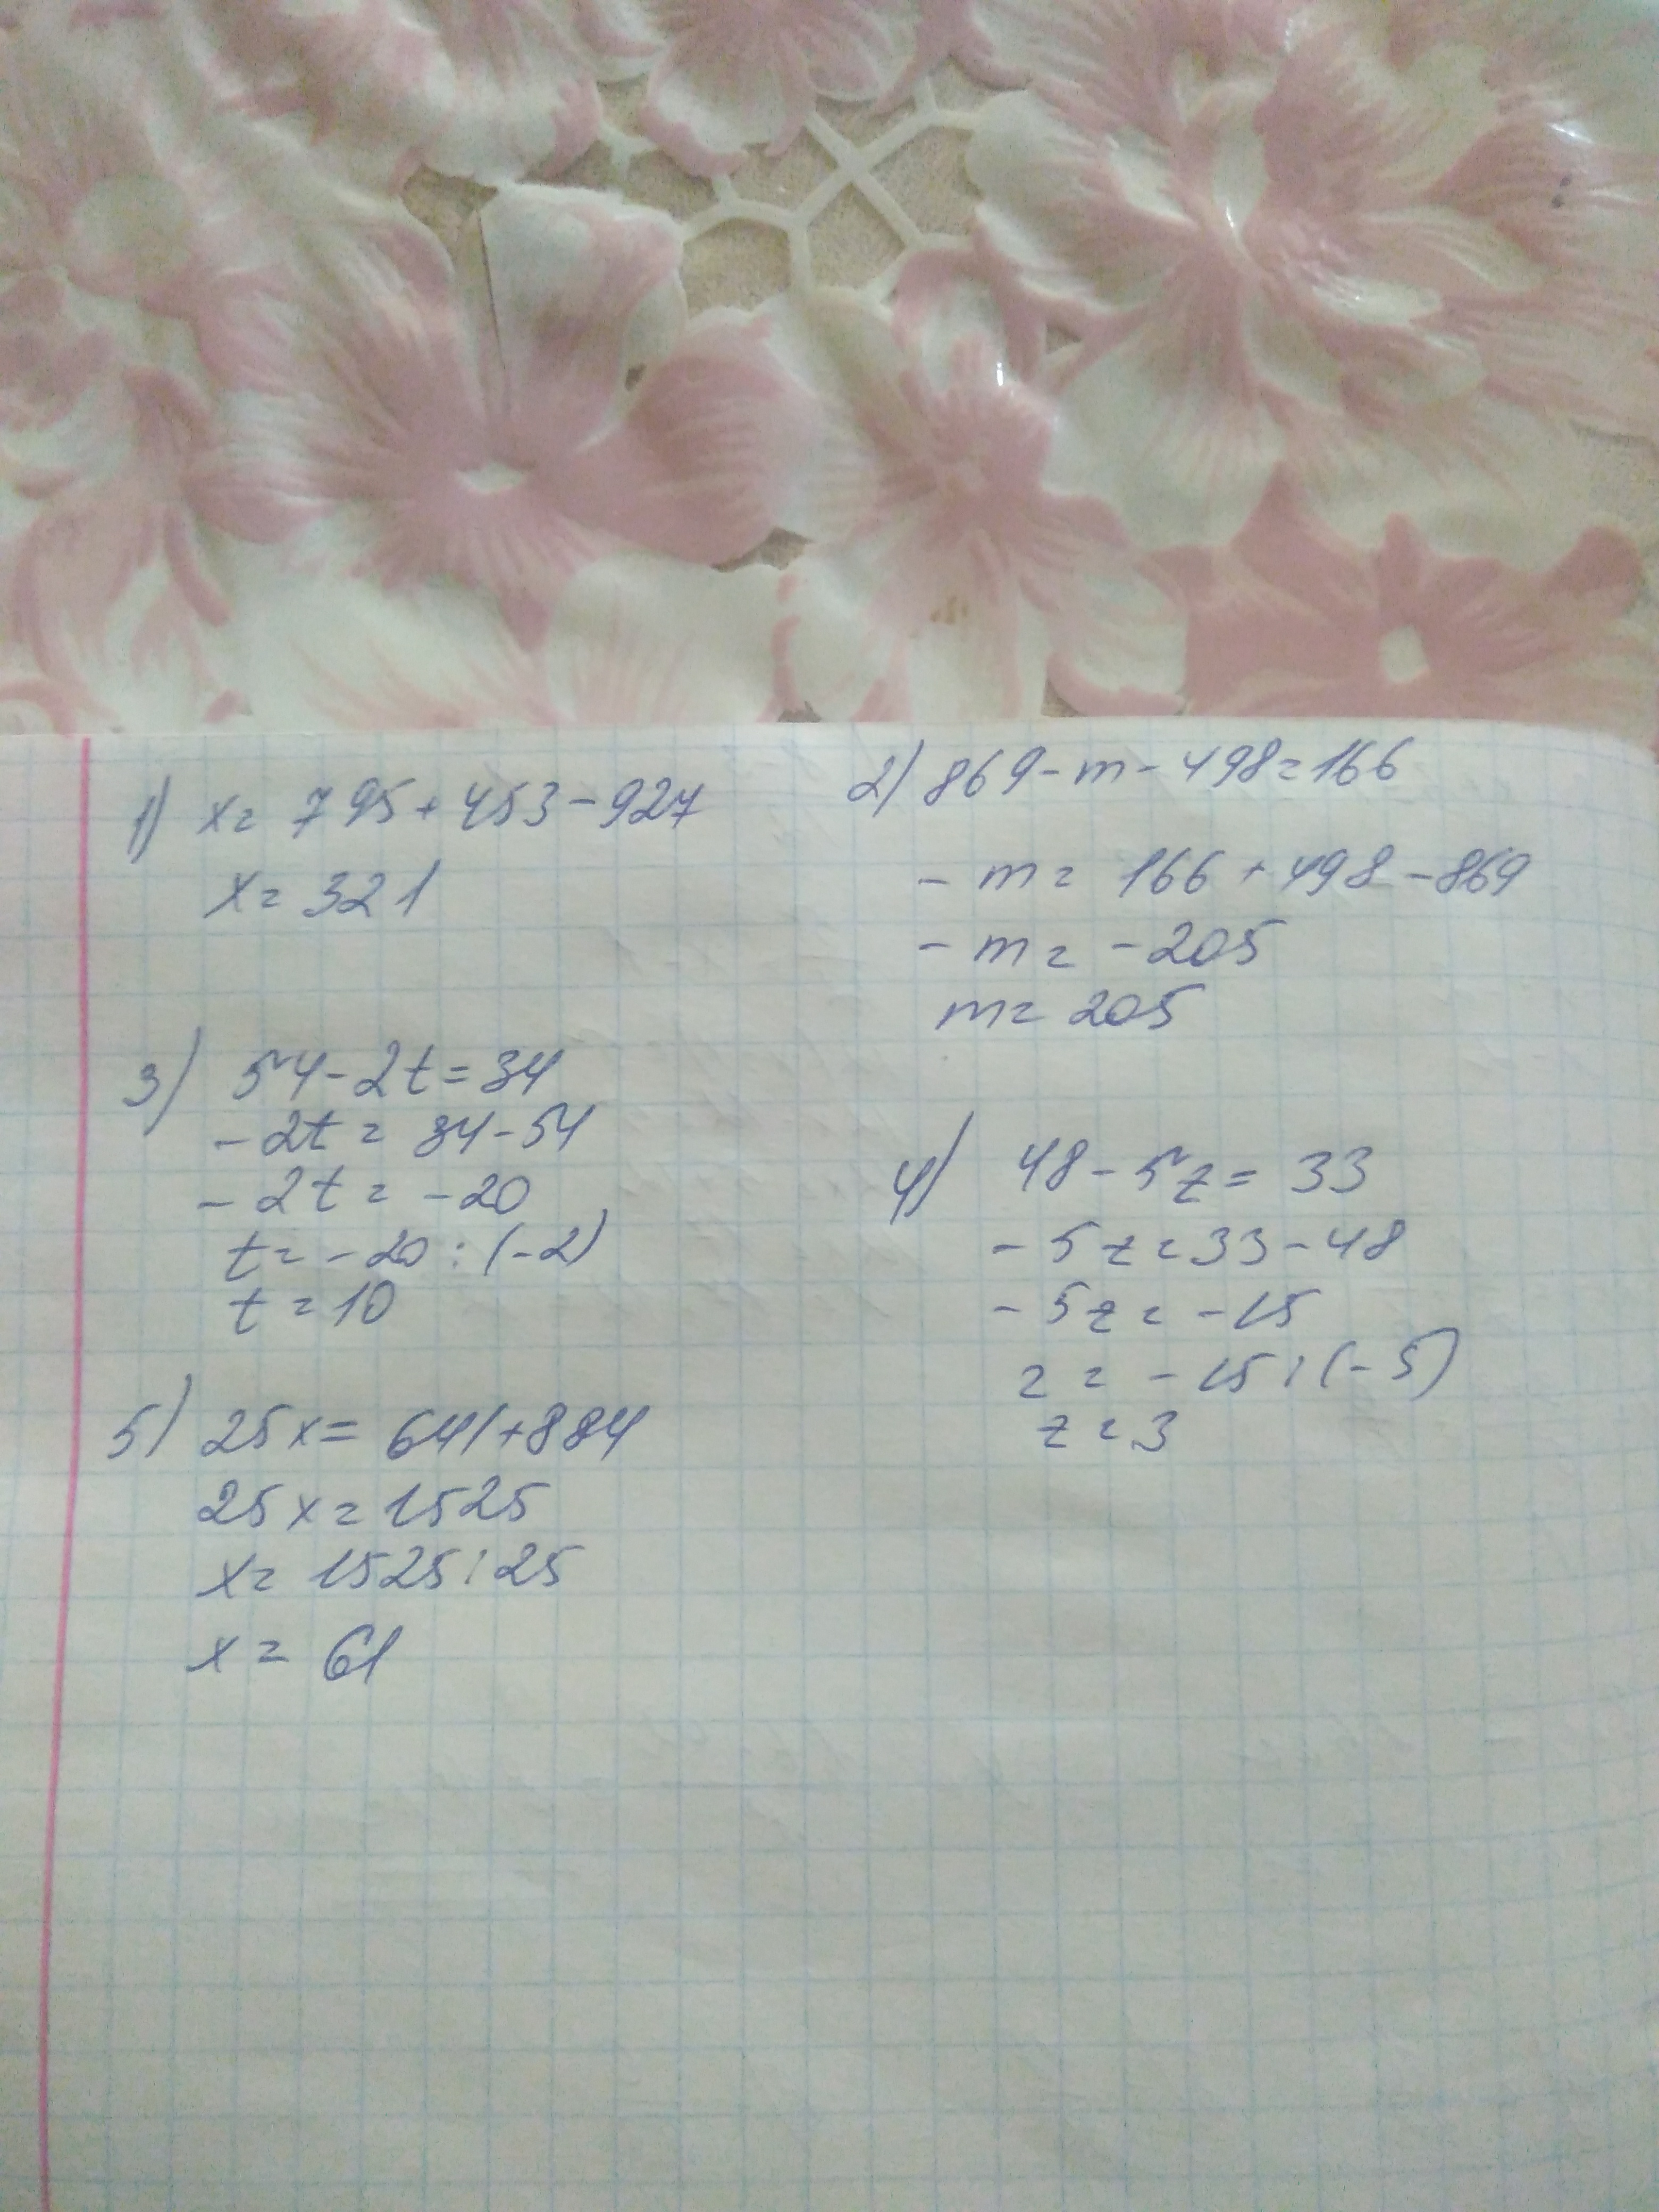 1) x = 795 + 453 - 927
x = 321
2) 869 - m - 498 = 166
- m = 166 + 498 - 869
- m = - 205
m = 205
3) 54 - 2t = 34
- 2t = 34 - 54
- 2t = - 20
t = - 20 : (-2)
t = 10
4) 48 - 5z = 33
- 5z = 33 - 48
- 5z = - 15
z = - 15 : (- 5)
z = 3
5) 25x = 641 + 884
25x = 1525
x = 1525 : 25
x = 61